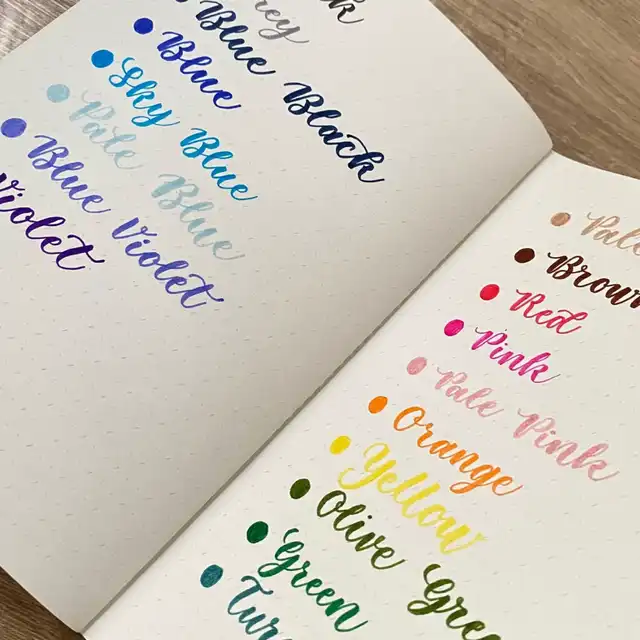 rey
Blue Black
Blue
Sky Blue
Pale Blue
Blue Violet
Violet
Pale
Brown
Red
Pink
Pale Pink
Orange
Yellow
Olive Gree
Green
Tur